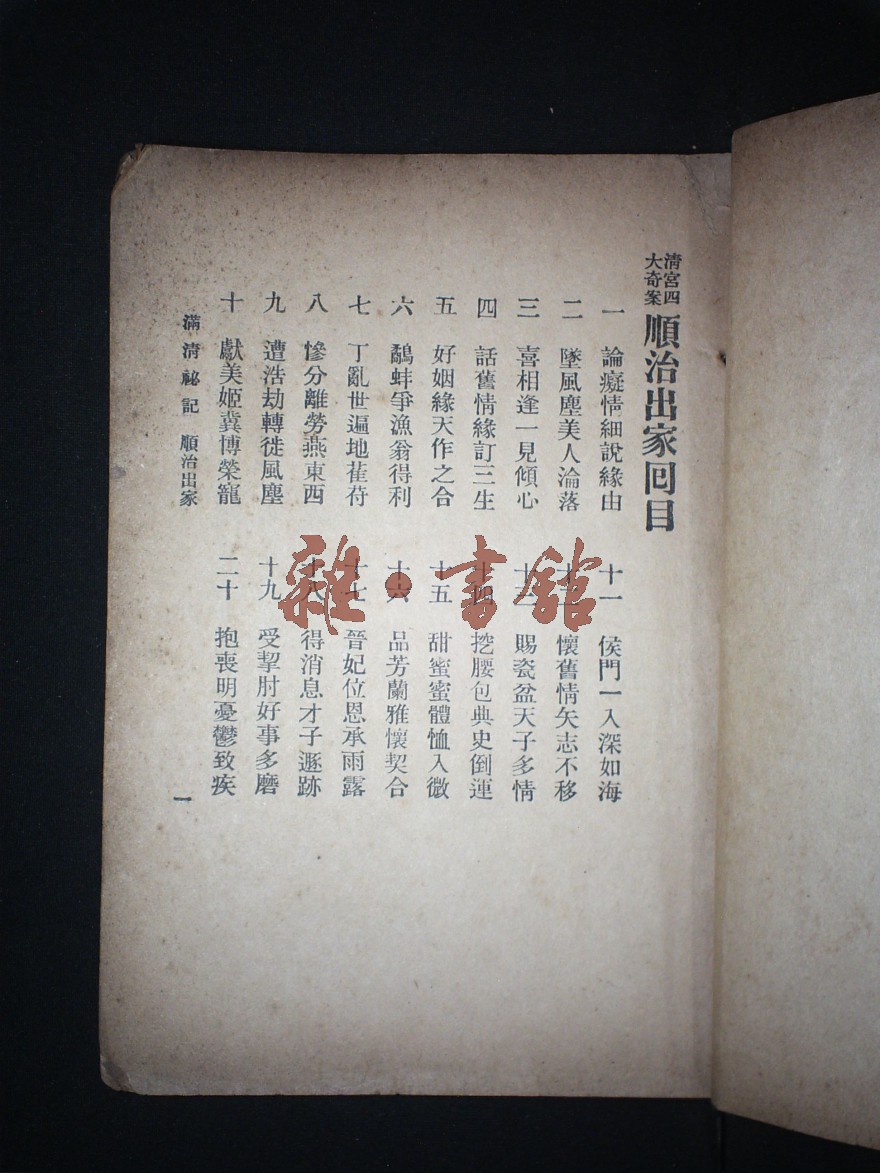 清宮四大奇案
順治出家回目
一 論癡情細說緣由
二 墜風塵美人淪落
三 喜相逢一見傾心
四 話舊情緣訂三生
五 好姻緣天作之合
六 鷸蚌爭漁翁得利
七 丁亂世遍地萑苻
八 慘分離勞燕東西
九 遭浩劫轉徙風塵
十 獻美姬冀博榮寵
十一 侯門一入深如海
十二 懷舊情矢志不移
十三 賜瓷盆天子多情
十四 挖腰包典史倒運
十五 甜蜜蜜體恤入微
十六 品芳蘭雅懷契合
十七 晉妃位恩承雨露
十八 得消息才子遯跡
十九 受掣肘好事多磨
二十 抱喪明憂鬱致疾
滿清祕記 順治出家
一
雜·書館